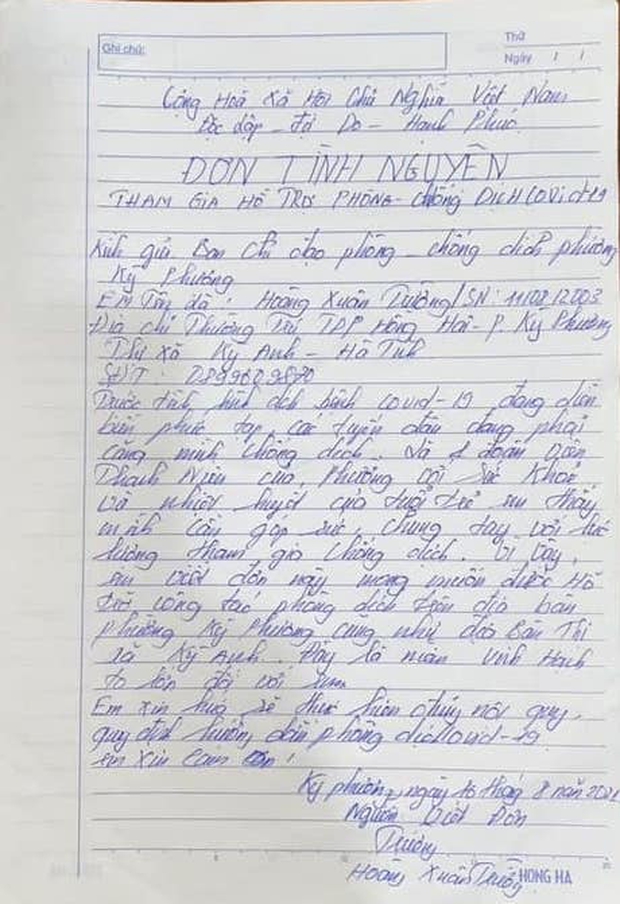 Ghi chú:
Thứ
Ngày / /
Cộng Hoà Xã Hội Chủ Nghĩa Việt Nam
Độc Lập - Tự Do - Hạnh Phúc
ĐƠN TÌNH NGUYỆN
THAM GIA HỖ TRỢ PHÒNG - Chống DỊCH COVID-19
Kính gửi Ban chỉ đạo phòng - chống dịch phường
Kỳ Phương
EM Tên là: Hoàng Xuân Trường / SN: 11/08/2003
Địa chỉ Thường Trú TDP Hồng Hải - P. Kỳ Phương
Thị Xã Kỳ Anh - Hà Tĩnh
SĐT: 0899609870
Trước tình hình dịch bệnh covid-19 đang diễn
biến phức tạp, các tuyến đầu đang phải
căng mình chống dịch. Là 1 đoàn viên
Thanh Niên của Phường với Sức Khoẻ
và nhiệt huyết của tuổi trẻ em thấy
mình cần góp sức, chung tay với lực
lượng tham gia chống dịch. Vì vậy,
em viết đơn này mong muốn được Hỗ
trợ công tác phòng dịch trên địa bàn
phường Kỳ Phương cũng như địa Bàn Thị
xã Kỳ Anh. Đây là niềm Vinh Hạnh
to lớn đối với em
Em xin hứa sẽ thực hiện đúng nội quy,
quy định hướng dẫn phòng dịch covid-19
em xin cảm ơn!
Kỳ phương, ngày 16 tháng 8 năm 2021
Người Viết Đơn
Trường
Hoàng Xuân Trường
HONG HA